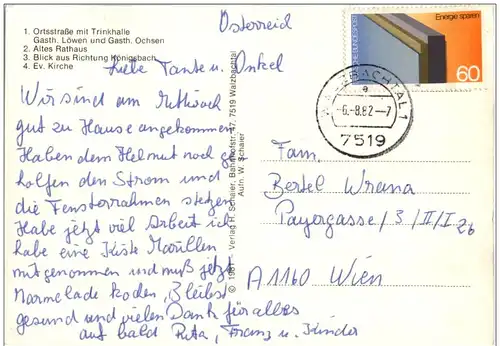 1. Ortsstraße mit Trinkhalle
Gasth. Löwen und Gasth. Ochsen
2. Altes Rathaus
3. Blick aus Richtung Königsbach
4. Ev. Kirche
Österreich
Liebe Tante u. Onkel
Wir sind am Mittwoch
gut zu Hause angekommen
Haben dem Helmut noch ge
holfen den Strom und
die Fensterrahmen setzen
Habe jetzt viel Arbeit ich
habe eine Kiste Marillen
mitgenommen und muß jetzt
Marmelade kochen, Bleibst
gesund und vielen Dank für alles
auf bald Rita, Franz u. Kinder
© 1981 – Verlag H. Schaier, Bahnhofstr. 47, 7519 Walzbachtal
Aufn. W. Schaier
DEUTSCHE BUNDESPOST
Energie sparen
60
WALZBACHTAL 1
a
-6.-8.82-7
7519
Fam.
Bertel Wrana
Payergasse/3/II/I 26
A 1160 Wien